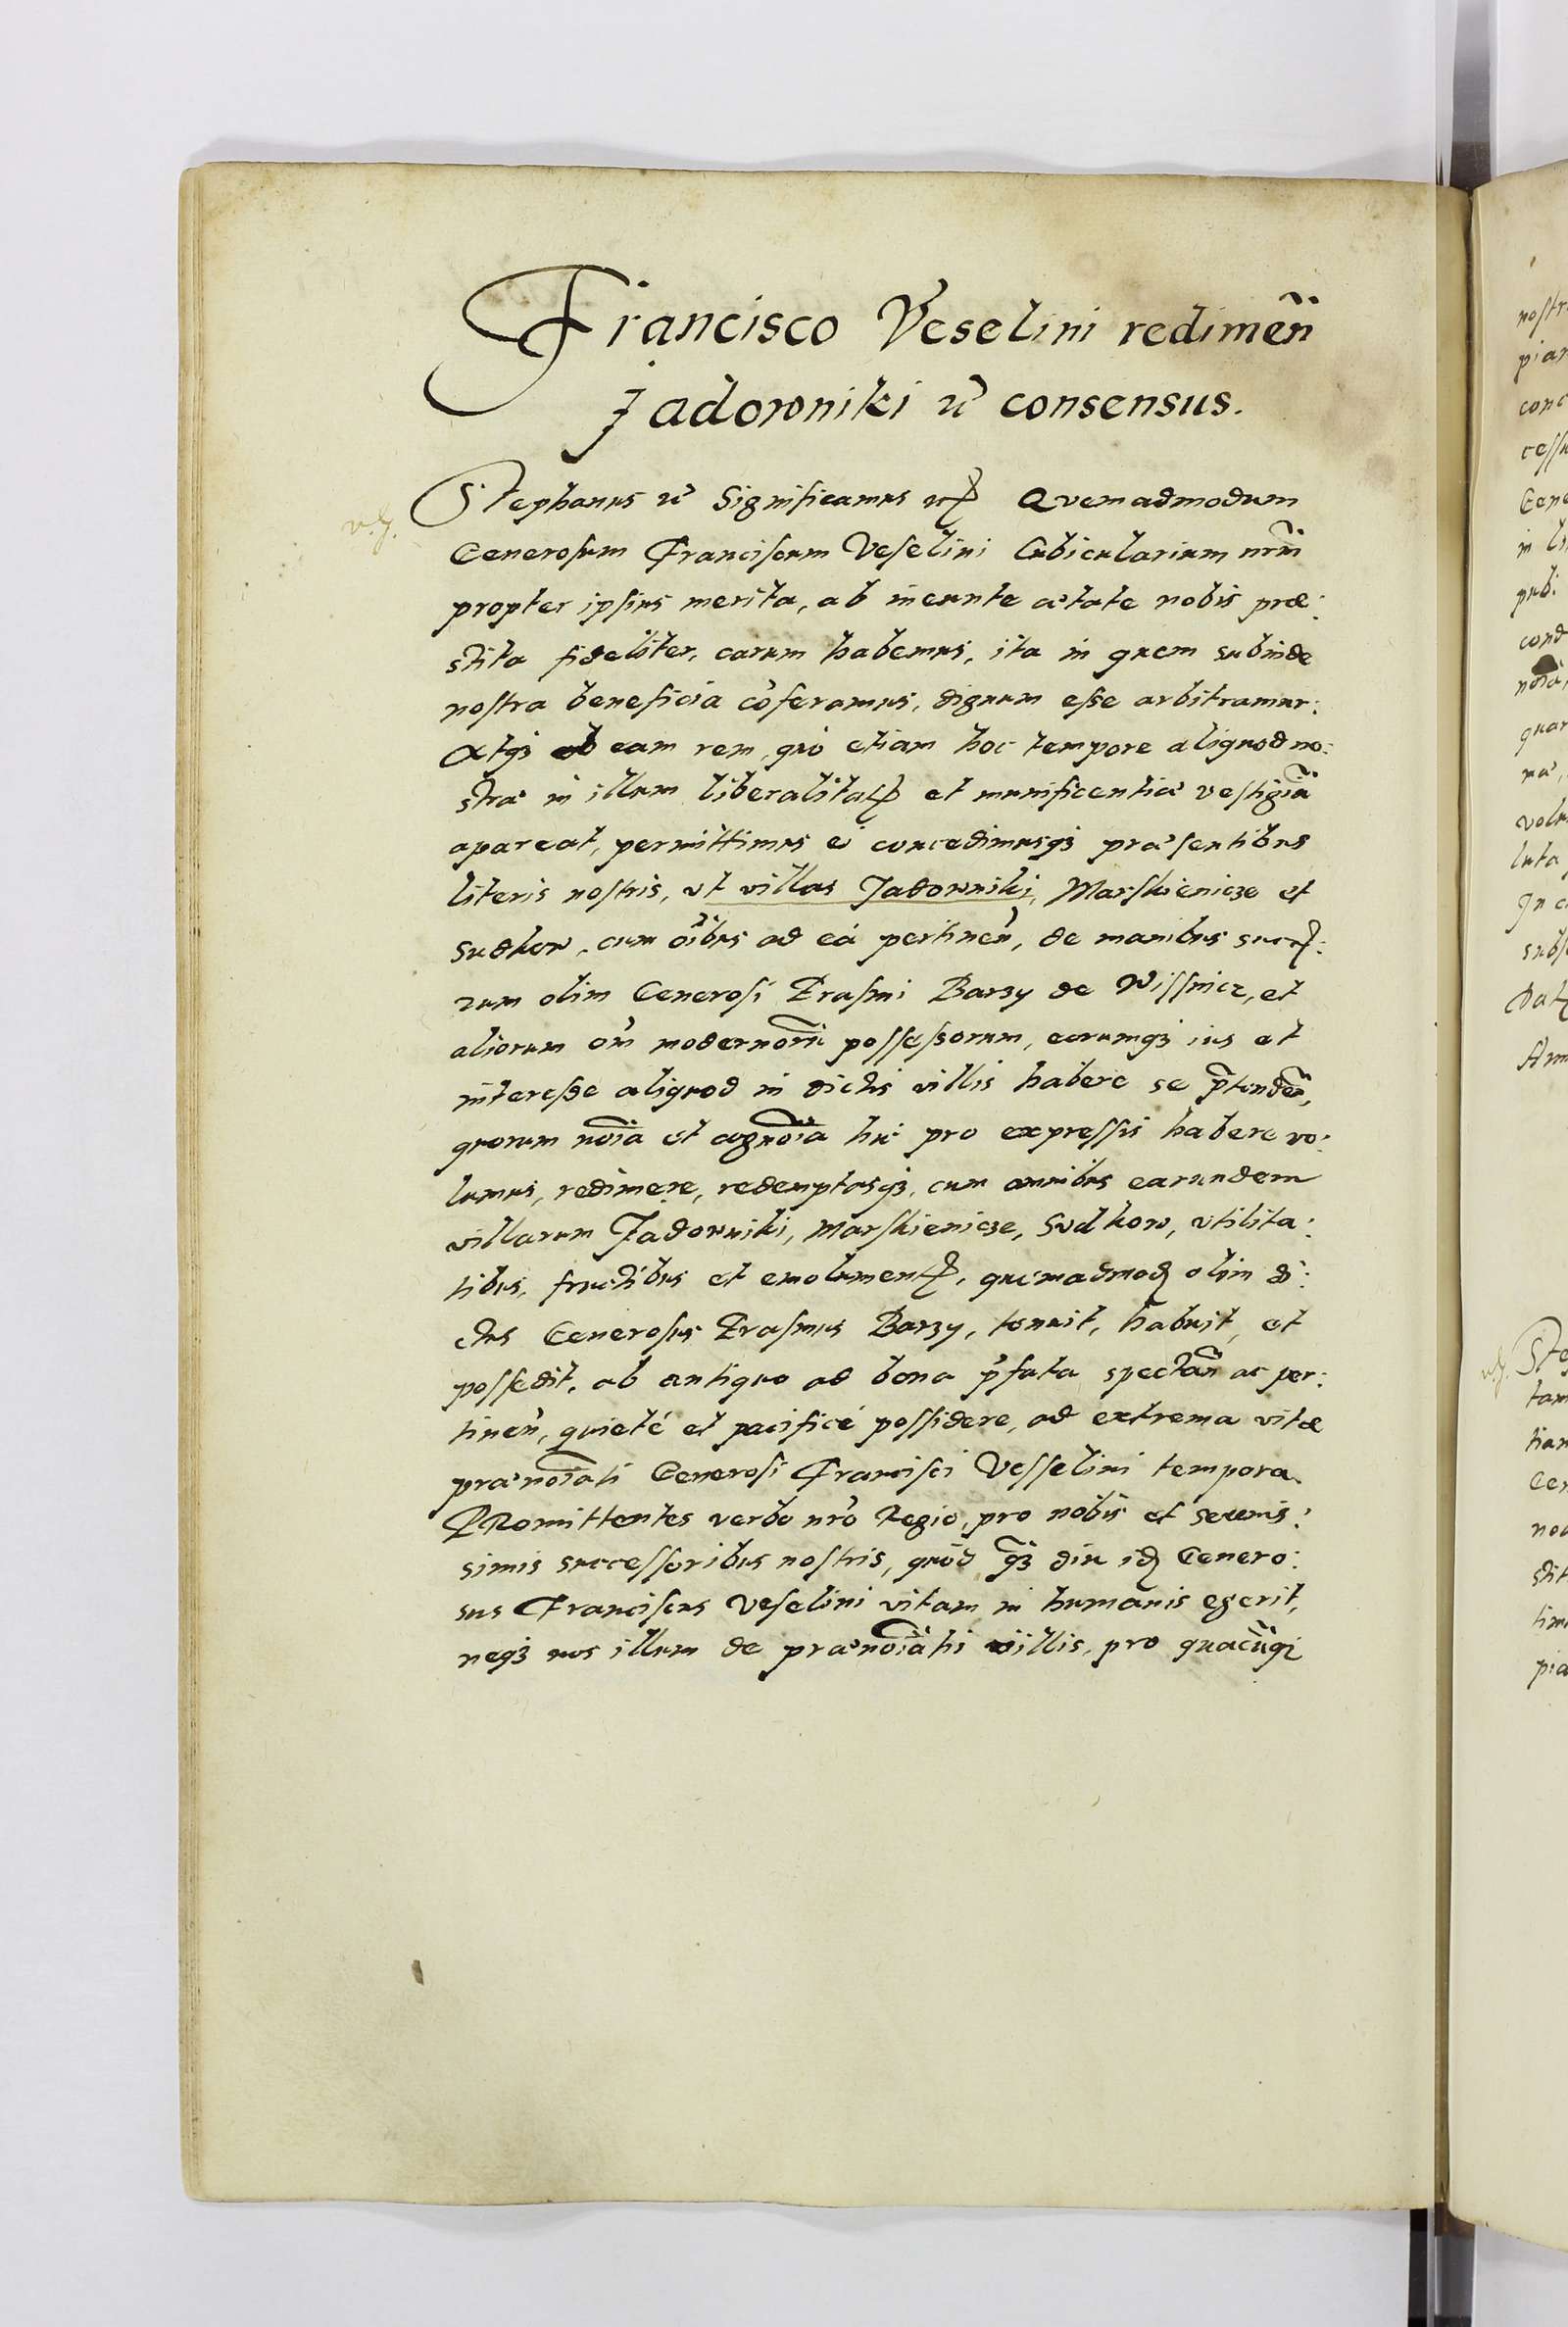 Francisco Veselini redimeñ
Jadowniki &c consensus.
Stephanus &c Significamus &c Quemadmodum
Generosum Franciscum Veselini Cubicularium nr̃m
propter ipsius merita, ab ineunte ætate nobis præ:
stita fideliter, carum habemus, ita in quem subinde
nostra beneficia cõferamus, dignum esse arbitramur:
Atqȝ ob eam rem, quò etiam hoc tempore aliquod no:
stræ in illum liberalitatis et munificentiæ vestigiũ
apareat, permittimus ei concedimusqȝ præsentibus
literis nostris, vt villas Jadowniki, Marskienicze et
Sudkow, cum oĩbus ad eá pertineñ, de manibus succes:
rum olim Generosi Erasmi Barzy de Wissnicz, et
aliorum om̃ modernorũ possessorum, earumqȝ ius et
interesse aliquod in dictis villis habere se p̃tendeñ,
quorum noĩa et cognoĩa hic pro expressis habere vo:
lumus, redimere, redemptasqȝ, cum omnibus earundem
villarum Jadowniki, Marskienicze, Sudkow, vtilita:
tibus, fructibus et emolumentis, quemadmodum olim di:
ctus Generosus Erasmus Barzy, tenuit, habuit, et
possedit, ab antiquo ad bona p̃fata spectañ ac per:
tineñ, quieté et pacificé possidere, ad extrema vitæ
prænoĩati Generosi Francisci Vesselini tempora.
PRomittentes verbo nr̃o Regio, pro nobis et serenis:
simis successoribus nostris, quòd qȝ diu idem Genero:
sus Franciscus Veselini vitam in humanis egerit,
neqȝ nos illum de prænoĩatis villis, pro quacũqȝ